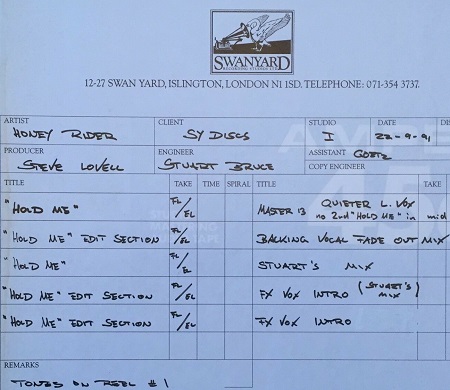 SWANYARD
RECORDING STUDIOS LTD
12-27 SWAN YARD, ISLINGTON, LONDON N1 1SD. TELEPHONE: 071-354 3737.
ARTIST CLIENT STUDIO DATE
HONEY RIDER SY DISCS I 22-9-91
PRODUCER ENGINEER ASSISTANT GOETZ
STEVE LOVELL STUART BRUCE COPY ENGINEER
TITLE TAKE TIME SPIRAL TITLE TAKE
"HOLD ME" FL/EL MASTER 13 QUIETER L. VOX
no 2nd "HOLD ME" in mid
"HOLD ME" EDIT SECTION FL/EL BACKING VOCAL FADE OUT MIX
"HOLD ME" FL/EL STUART'S MIX
"HOLD ME" EDIT SECTION FL/EL FX VOX INTRO (STUART'S MIX)
"HOLD ME" EDIT SECTION FL/EL FX VOX INTRO
REMARKS
TONES ON REEL #1